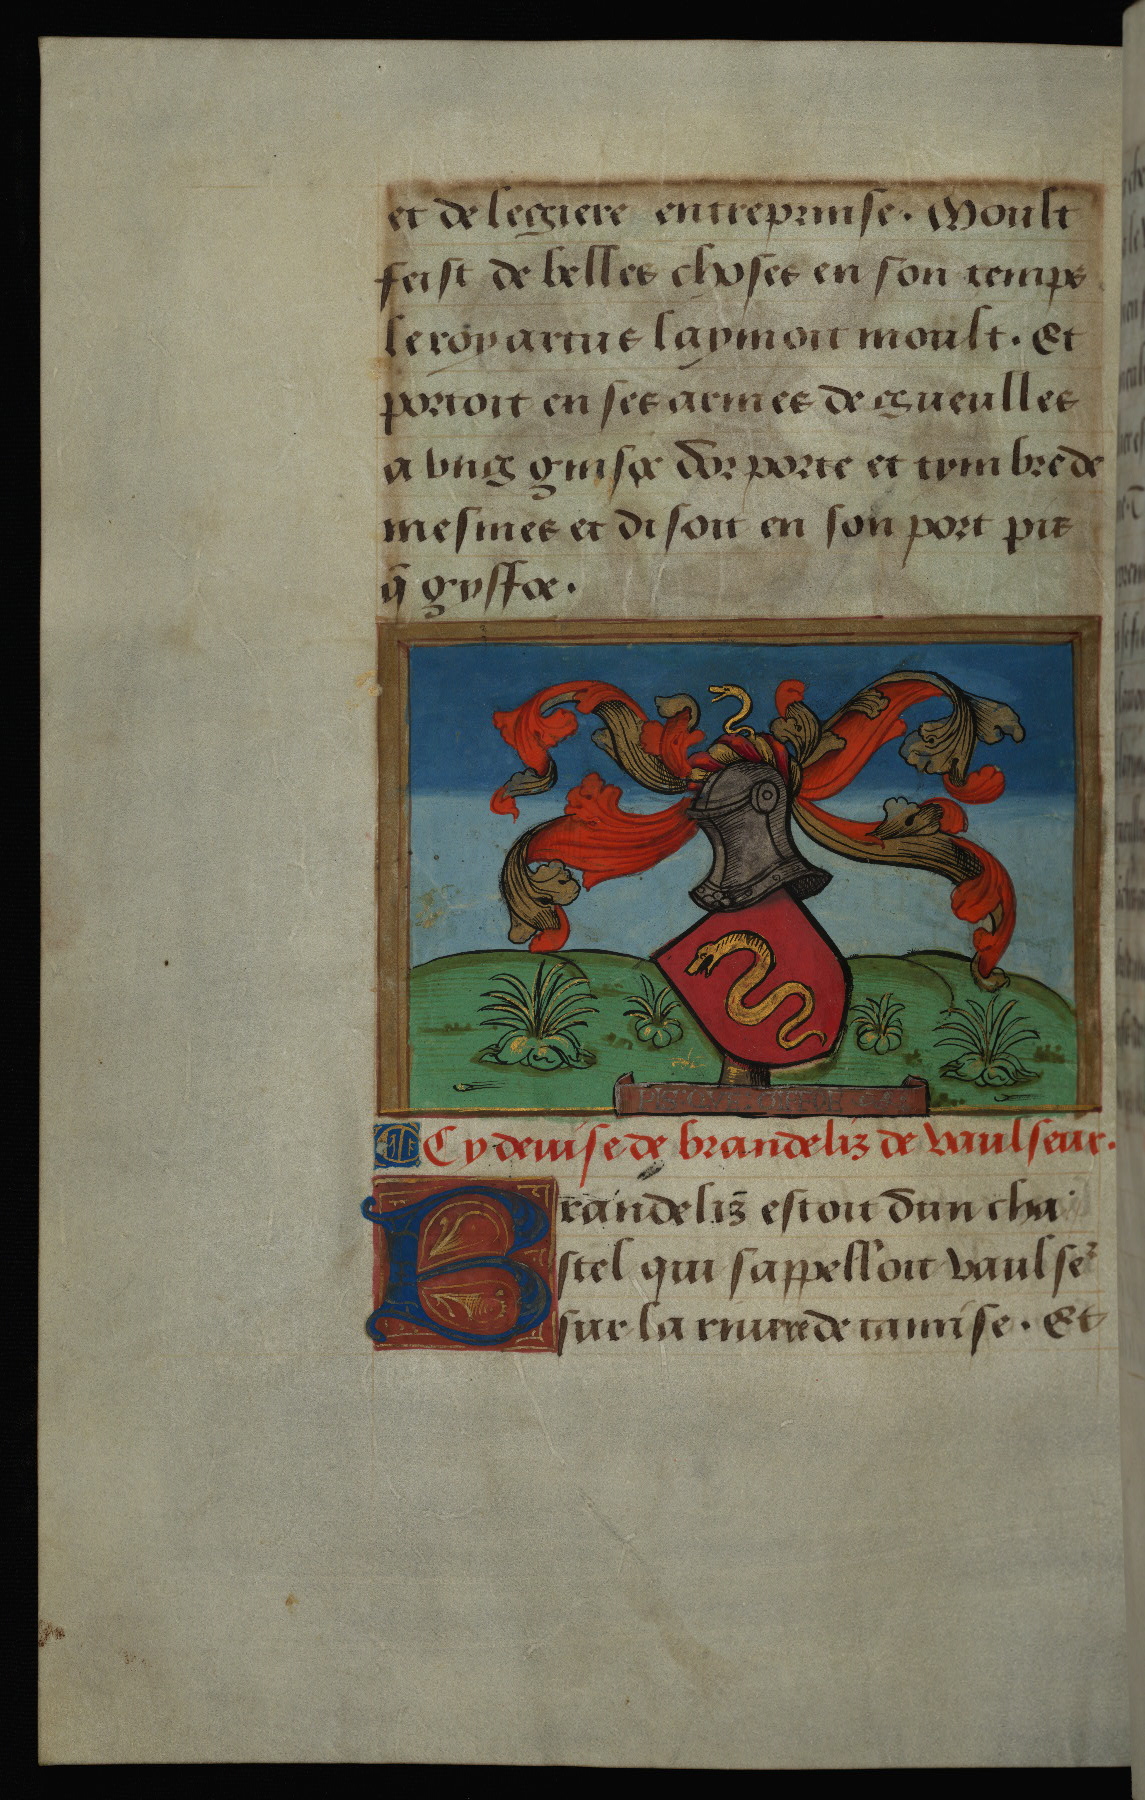 et de legiere entreprinse. Moult
feist de belles choses en son temps
le roy artus laymoit moult. Et
portoit en ses armes de gueulles
a vng
dor porte et tymbre de
mesmes et disoit en son port pis
q̄ gryffoē.
Cy deuise de brandeliz de vaulseur.
Brandeliz estoit dun cha
stel qui sappelloit vaulse
sur la riuiere de tamise. Et